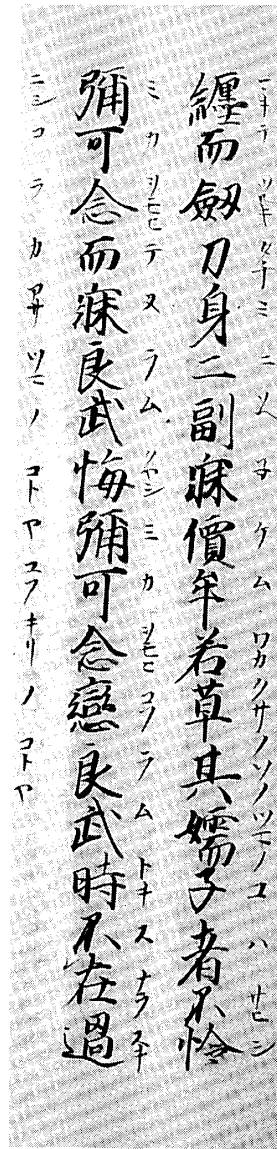 マキテ ツルキタチ ミ ニ ソヘ ネ ケム ワカクサノ ソノ ツマノ コ ハ サヒシ
纏而劔刀身二副寐價牟若草其嬬子者不怜
ミ カ オモヒ テ ヌ ラム クヤシ ミ カ オモヒ コフ ラム トキ ス ナラ スキ
彌可念而寐良武悔彌可念戀良武時不在過
ニシ コ ラ カ アサ ツユ ノ コトヤ ユフキリノ コトヤ